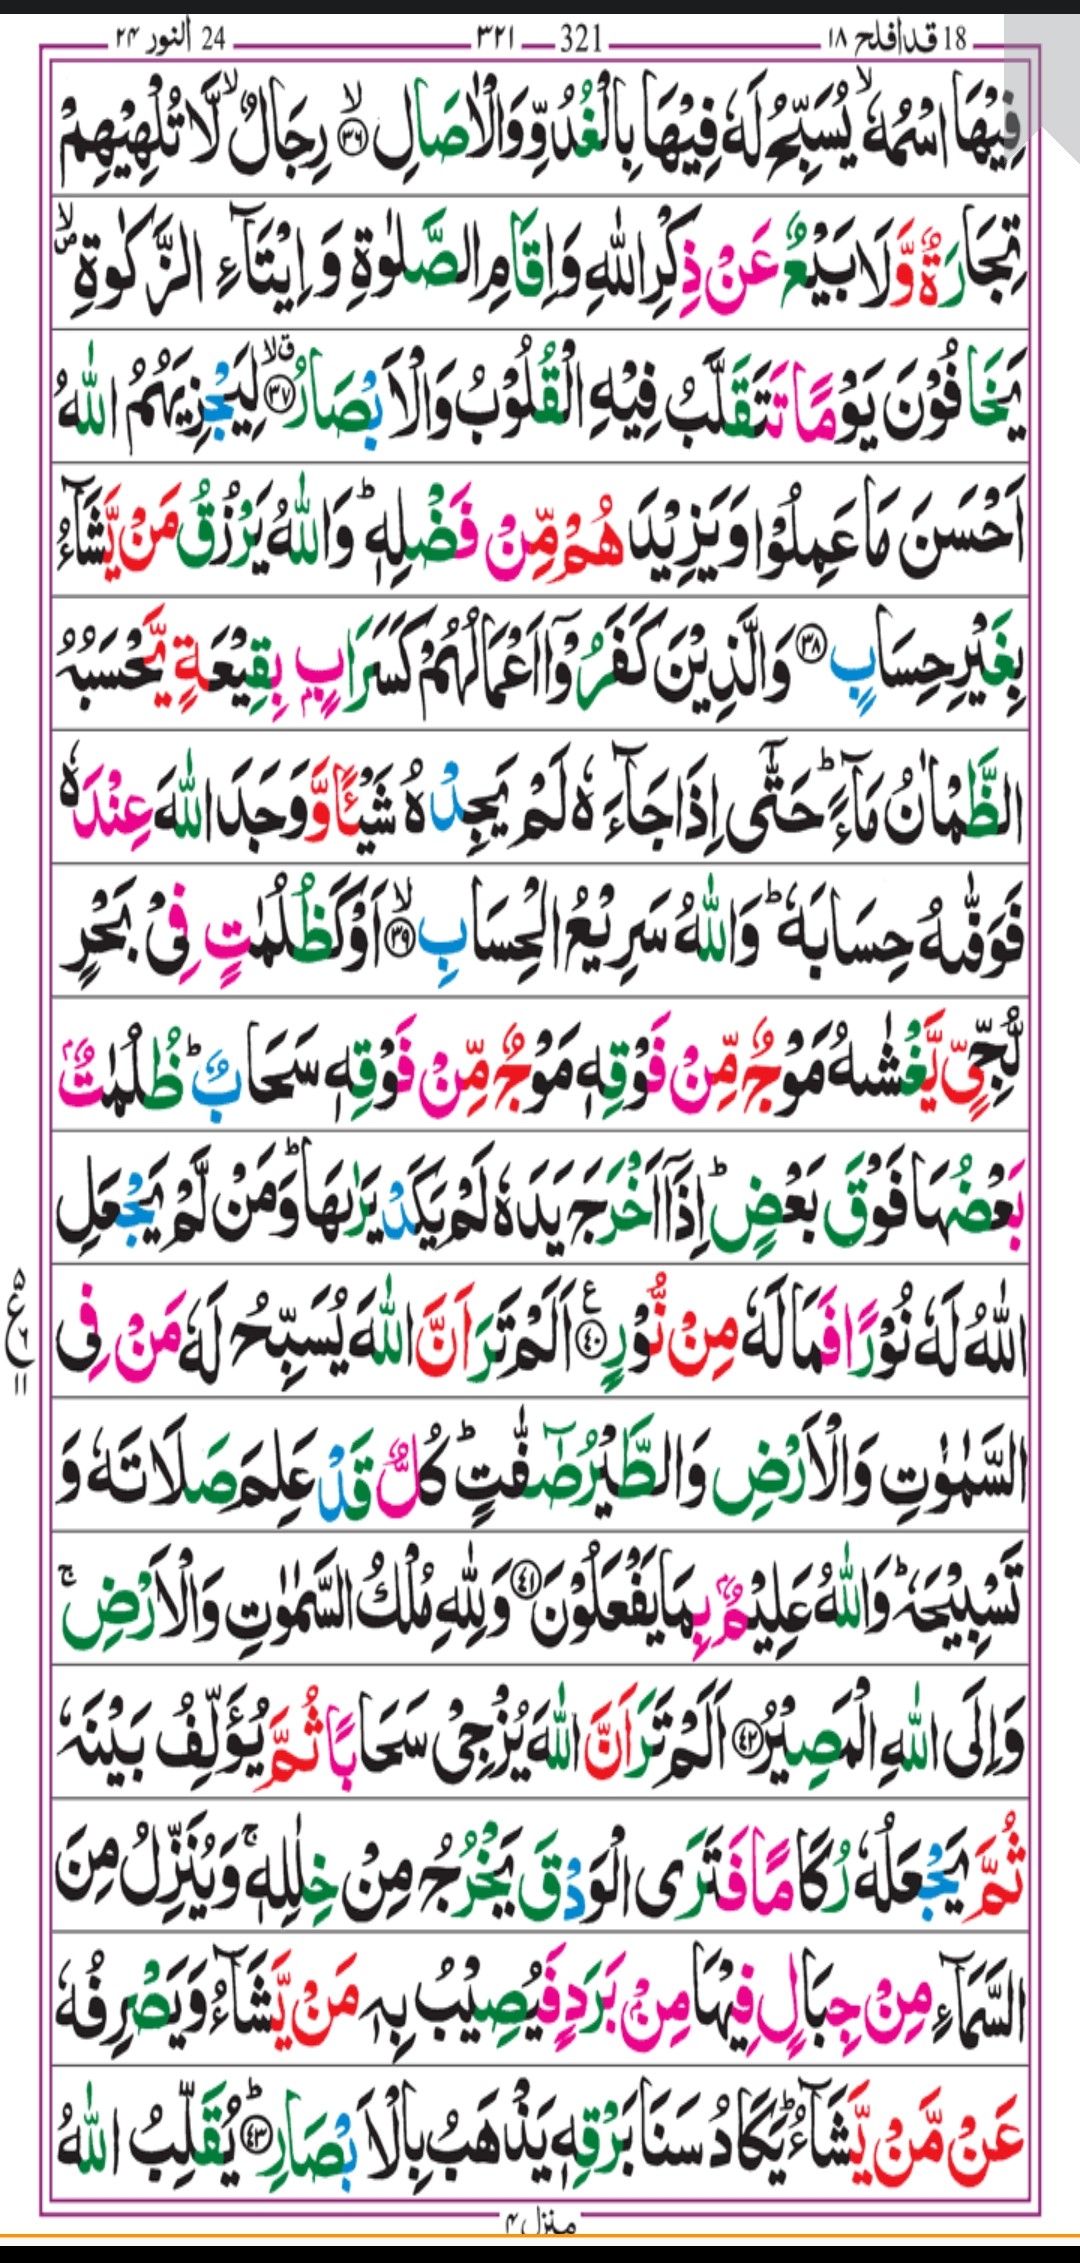 18 قد افلح ١٨ 321 ٣٢١ 24 النور ٢٤
فِيْهَا اسْمُهٗ ۙ يُسَبِّحُ لَهٗ فِيْهَا بِالْغُدُوِّ وَالْاٰصَالِ ۙ‏﴿۳۶﴾ رِجَالٌ ۙ لَّا تُلْهِيْهِمْ
تِجَارَةٌ وَّلَا بَيْعٌ عَنْ ذِكْرِ اللّٰهِ وَاِقَامِ الصَّلٰوةِ وَ اِيْتَآءِ الزَّكٰوةِ ۙ
يَخَافُوْنَ يَوْمًا تَتَقَلَّبُ فِيْهِ الْقُلُوْبُ وَالْاَبْصَارُ ﴿۳۷﴾ۙق لِيَجْزِيَهُمُ اللّٰهُ
اَحْسَنَ مَا عَمِلُوْا وَيَزِيْدَهُمْ مِّنْ فَضْلِهٖ ؕ وَاللّٰهُ يَرْزُقُ مَنْ يَّشَآءُ
بِغَيْرِ حِسَابٍ ﴿۳۸﴾ وَالَّذِيْنَ كَفَرُوْۤا اَعْمَالُهُمْ كَسَرَابٍۭ بِقِيْعَةٍ يَّحْسَبُهُ
الظَّمْاٰنُ مَآءً ؕ حَتّٰۤى اِذَا جَآءَهٗ لَمْ يَجِدْهُ شَيْـًٔا وَّ وَجَدَ اللّٰهَ عِنْدَهٗ
فَوَفّٰٮهُ حِسَابَهٗ ؕ وَاللّٰهُ سَرِيْعُ الْحِسَابِ ۙ﴿۳۹﴾ اَوْ كَظُلُمٰتٍ فِىْ بَحْرٍ
لُّجِّىٍّ يَّغْشٰٮهُ مَوْجٌ مِّنْ فَوْقِهٖ مَوْجٌ مِّنْ فَوْقِهٖ سَحَابٌ ؕ ظُلُمٰتٌۢ
بَعْضُهَا فَوْقَ بَعْضٍ ؕ اِذَاۤ اَخْرَجَ يَدَهٗ لَمْ يَكَدْ يَرٰٮهَا ؕ وَمَنْ لَّمْ يَجْعَلِ
اللّٰهُ لَهٗ نُوْرًا فَمَا لَهٗ مِنْ نُّوْرٍ ﴿۴۰﴾ع اَلَمْ تَرَ اَنَّ اللّٰهَ يُسَبِّحُ لَهٗ مَنْ فِى
٥ ع ٦ ١١
السَّمٰوٰتِ وَالْاَرْضِ وَالطَّيْرُ صٰٓفّٰتٍ ؕ كُلٌّ قَدْ عَلِمَ صَلَاتَهٗ وَ
تَسْبِيْحَهٗ ؕ وَاللّٰهُ عَلِيْمٌۢ بِمَا يَفْعَلُوْنَ ﴿۴۱﴾ وَلِلّٰهِ مُلْكُ السَّمٰوٰتِ وَالْاَرْضِ ۚ
وَاِلَى اللّٰهِ الْمَصِيْرُ ﴿۴۲﴾ اَلَمْ تَرَ اَنَّ اللّٰهَ يُزْجِىْ سَحَابًا ثُمَّ يُؤَلِّفُ بَيْنَهٗ
ثُمَّ يَجْعَلُهٗ رُكَامًا فَتَرَى الْوَدْقَ يَخْرُجُ مِنْ خِلٰلِهٖ ۚ وَيُنَزِّلُ مِنَ
السَّمَآءِ مِنْ جِبَالٍ فِيْهَا مِنْۢ بَرَدٍ فَيُصِيْبُ بِهٖ مَنْ يَّشَآءُ وَيَصْرِفُهٗ
عَنْ مَّنْ يَّشَآءُ ؕ يَكَادُ سَنَا بَرْقِهٖ يَذْهَبُ بِالْاَبْصَارِ ؕ﴿۴۳﴾ يُقَلِّبُ اللّٰهُ
منزل ٤